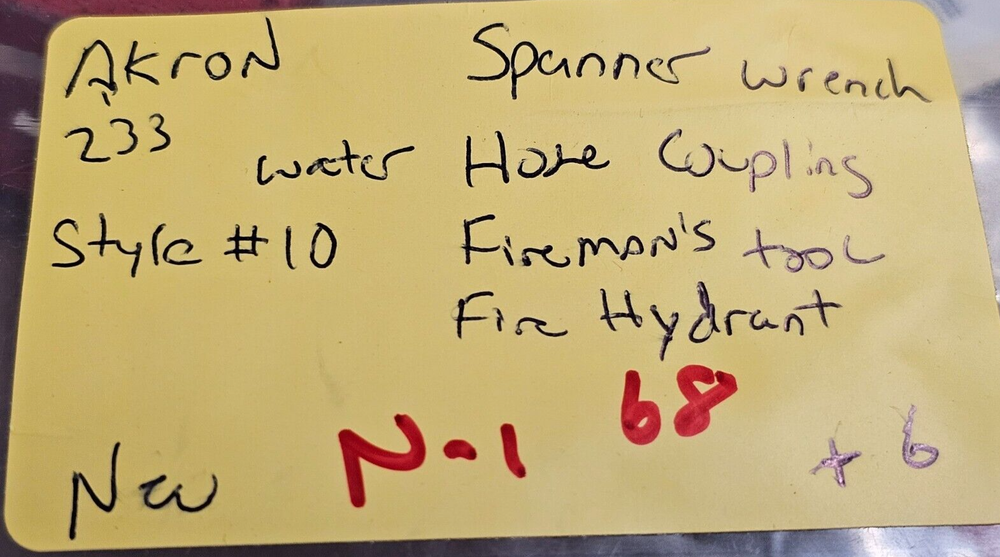 AkroN Spanner wrench
233
water Hose Coupling
Style #10 Firemon's tool
Fire Hydrant
68
N-1
+ 6
New